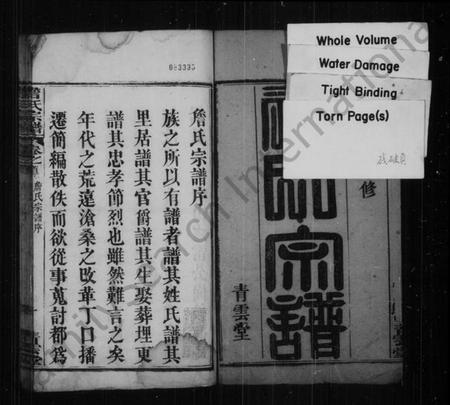 Whole Volume
Water Damage
Tight Binding
Torn Page(s)
修
宗譜
青雲堂
詹氏宗譜序
族之所以有譜者譜其姓氏譜其
里居譜其官爵譜其生娶葬埋更
譜其忠孝節烈也雖然難言之矣
年代之荒遠滄桑之改革丁口播
遷簡編散佚而欲從事蒐討都爲
詹氏宗譜
詹氏宗譜序